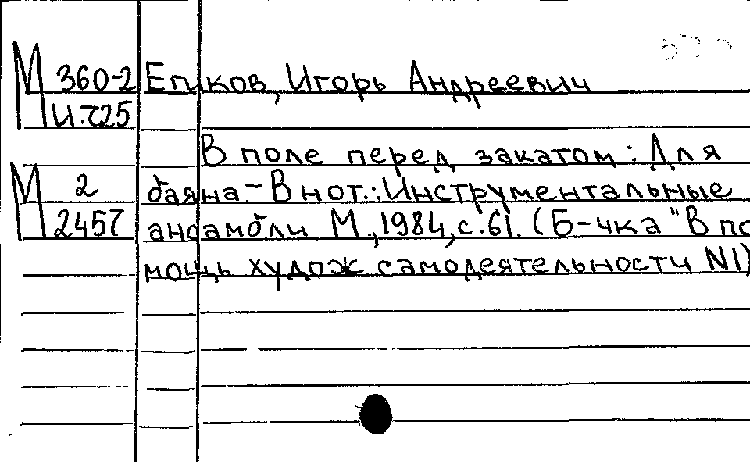 М 360-2 Епиков, Игорь Андреевич
И.725
В поле перед закатом: Для
М 2 баяна.- В нот.: Инструментальные
2457 ансамбли М., 1984, с.61. (Б-чка "В по
мощь худож самодеятельности N1)